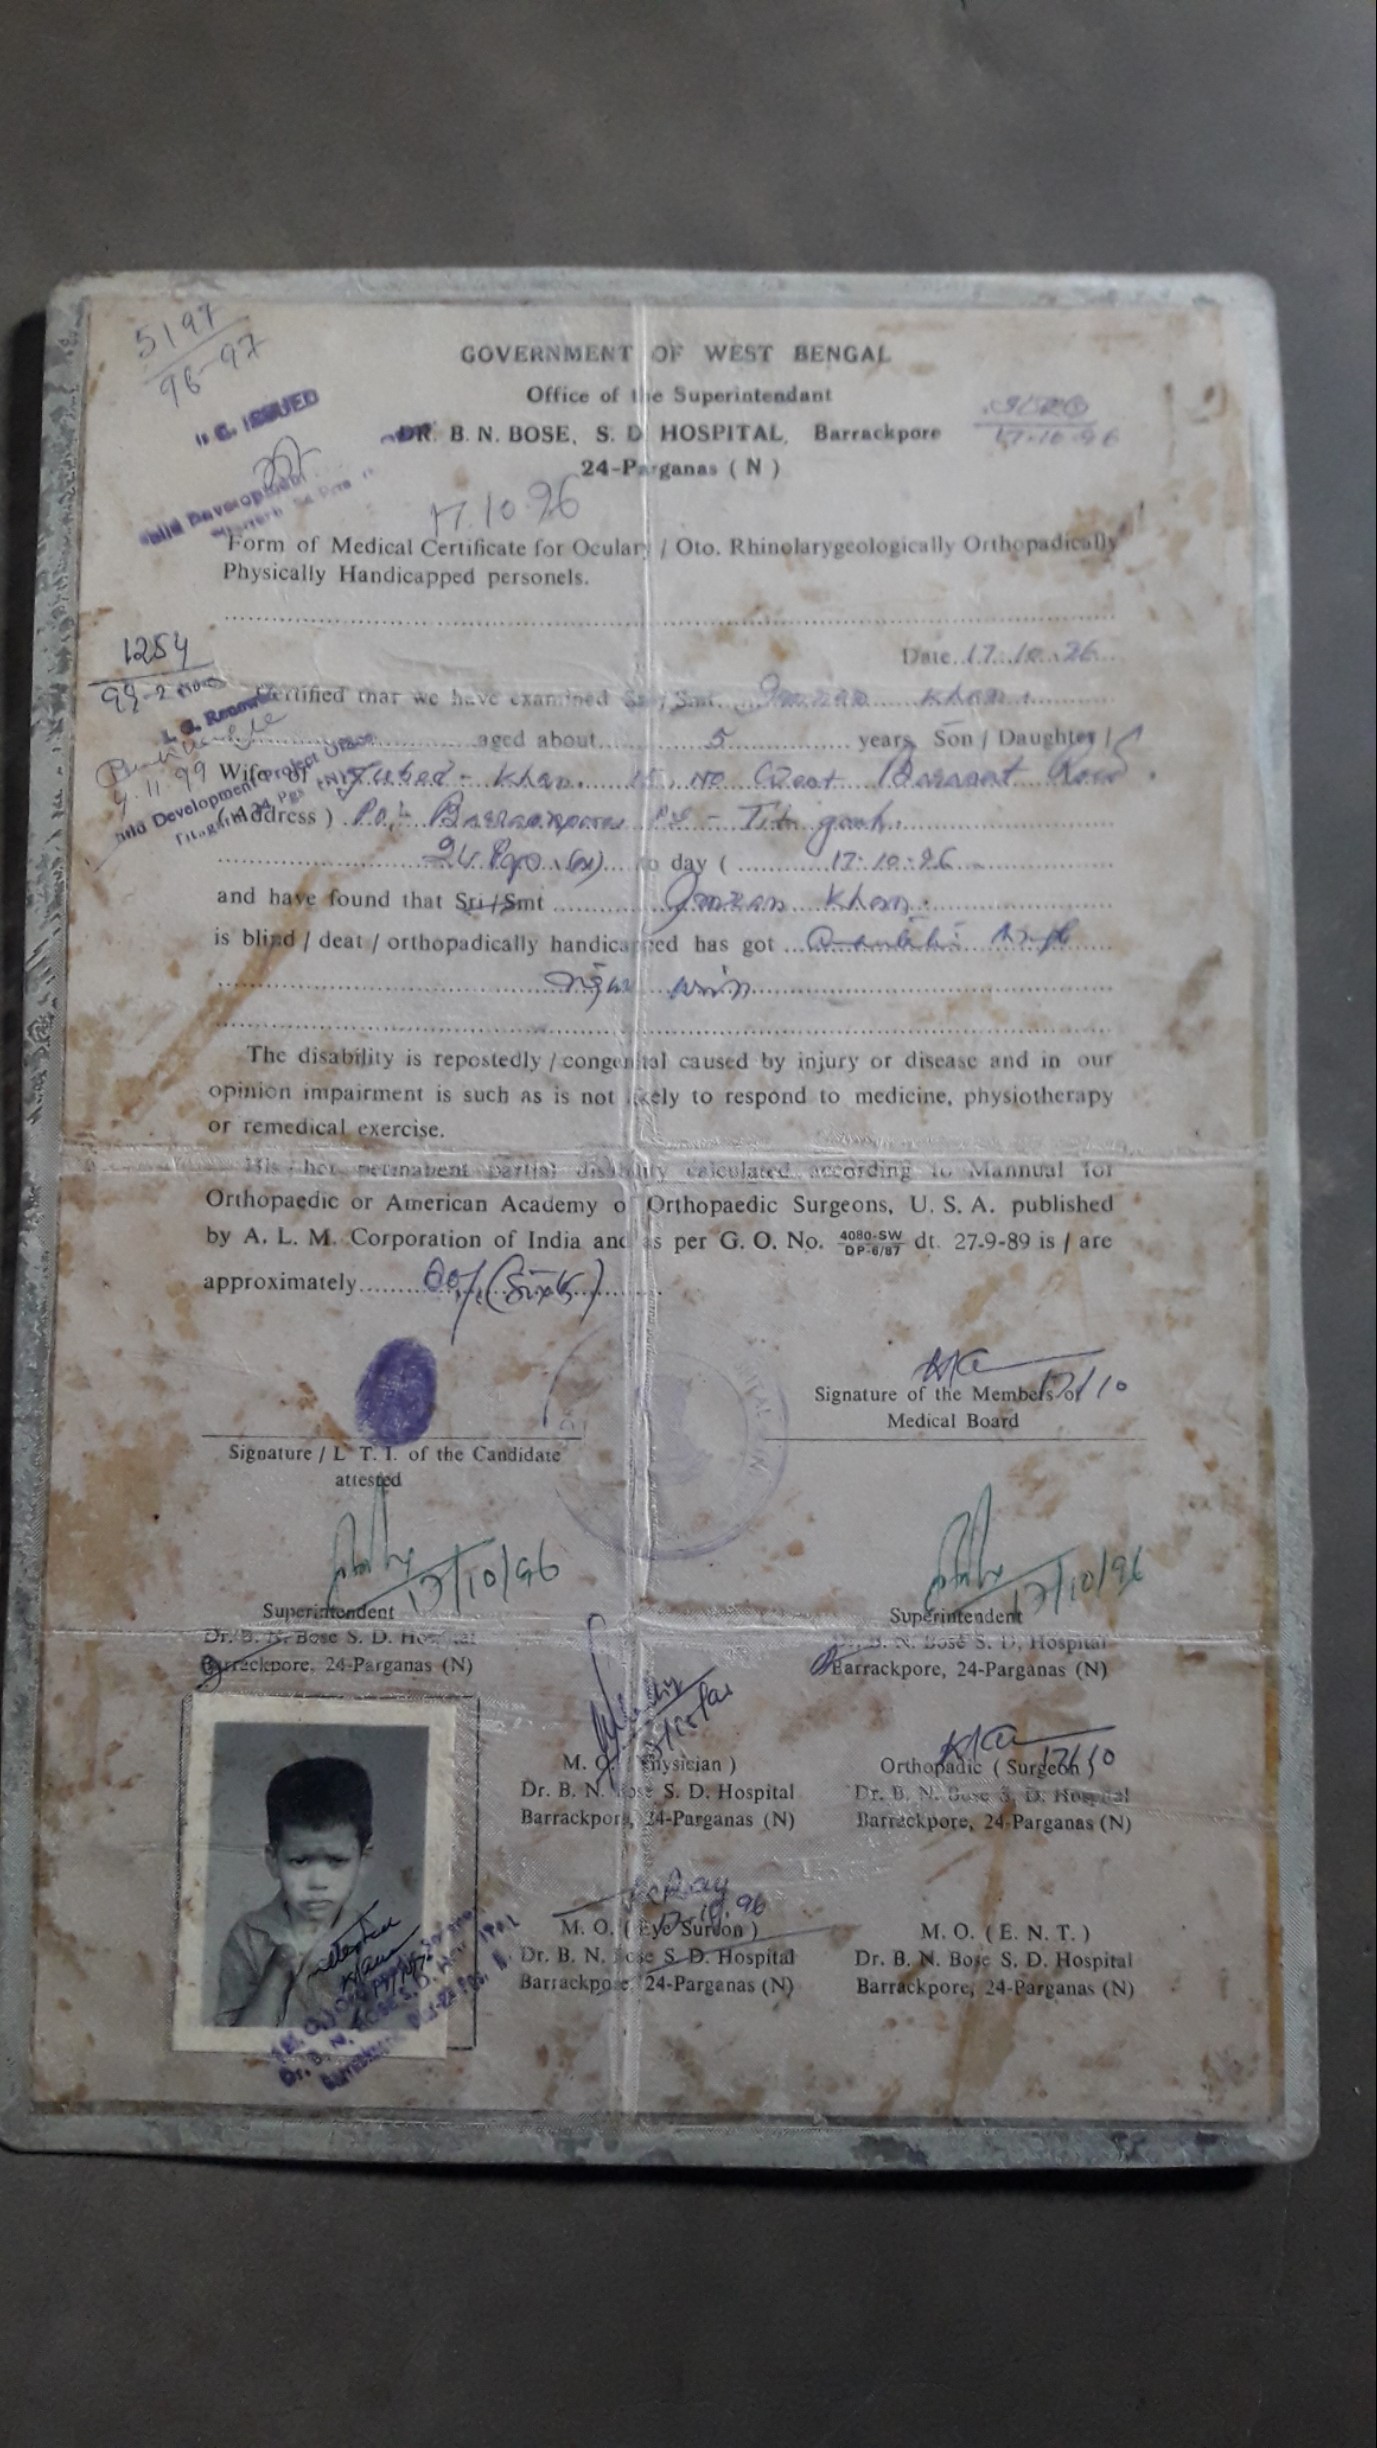 5197
96-97
GOVERNMENT OF WEST BENGAL
I. C. ISSUED
Office of the Superintendant
DR. B. N. BOSE, S. D. HOSPITAL, Barrackpore
17-10-96
24-Parganas ( N )
Child Development
17.10.96
Form of Medical Certificate for Ocular / Oto. Rhinolarygeologically Orthopadically
Physically Handicapped personels.
1254
Date 17.10.96
Certified that we have examined Sri/Smt. Imran Khan.
aged about 5 years, Son / Daughter /
Wife of Khan. 15, No West Barasat Road
9.11.99
Child Development Project Office
Titagarh 24 Pgs (N)
( Address ) P.O.- Barrackpore PS - Titagarh.
24 Pgs (N) to day ( 17.10.96
and have found that Sri/Smt Imran Khan.
is blind / deat / orthopadically handicapped has got
The disability is repostedly / congenital caused by injury or disease and in our
opinion impairment is such as is not likely to respond to medicine, physiotherapy
or remedical exercise.
His / her permanent partial disability calculated according to Mannual for
Orthopaedic or American Academy of Orthopaedic Surgeons, U. S. A. published
by A. L. M. Corporation of India and as per G. O. No. 4080-SW/DP-6/87 dt. 27-9-89 is / are
approximately 60%. (Sixty)
17/10
Signature of the Members of
Medical Board
Signature / L T. I. of the Candidate
attested
17/10/96
17/10/96
Superintendent
Dr. B. N. Bose S. D. Hospital
Barrackpore, 24-Parganas (N)
Superintendent
Dr. B. N. Bose S. D. Hospital
Barrackpore, 24-Parganas (N)
M. O. ( Physician )
Dr. B. N. Bose S. D. Hospital
Barrackpore, 24-Parganas (N)
17/10
Orthopadic ( Surgeon )
Dr. B. N. Bose S. D. Hospital
Barrackpore, 24-Parganas (N)
17.10.96
M. O. ( Eye Surdon )
Dr. B. N. Bose S. D. Hospital
Barrackpore, 24-Parganas (N)
M. O. ( E. N. T. )
Dr. B. N. Bose S. D. Hospital
Barrackpore, 24-Parganas (N)
Attested